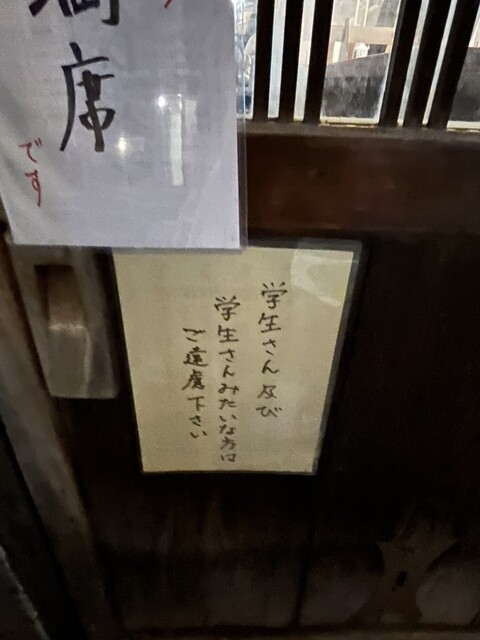 満席
です
学生さん及び
学生さんみたいな方は
ご遠慮下さい